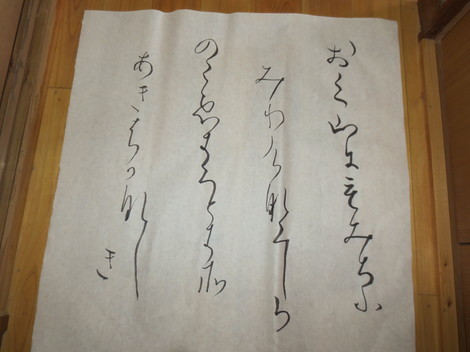 おく山にもみちふ
みわけ那くしか
のこゑきくとき所
あきはか那し
き